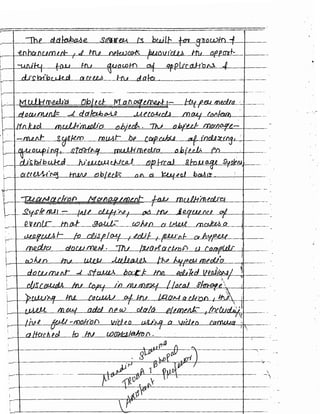 The database server is built for growth &
enhancement, & the network provides the opport-
-unity for the growth of applications &
distributed access to the data.
Multimedia Object Management:- Hyper media
documents & database records may contain
linked multimedia objects. The object manage-
-ment System must be capable of indexing,
grouping, storing multimedia objects in
distributed hierarchical optical storage System,
accessing these objects on a keyed basis.
Transaction Management for multimedia
Systems:- we define, as the sequence of
events that when a user makes a
request to display, edit, print a hyper
media document. The transaction is complete
when the user releases the hypermedia
document & stores back the edited version /
discards the copy in memory / local storage.
During the course of the transaction, the
user may add new data element, including
live full-motion video using a video camera
attached to the workstation.
Nandini Sharma
Bhopal
(Assistant Professor)